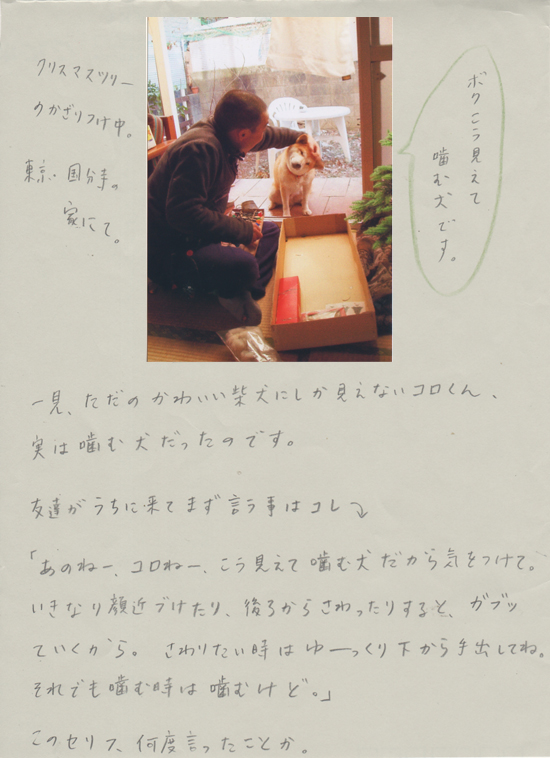 クリスマスツリー
のかざりつけ中。
東京・国分寺の
家にて。
ボクこう見えて
噛む犬です。
一見、ただのかわいい柴犬にしか見えないコロくん、
実は噛む犬だったのです。
友達がうちに来てまず言う事はコレ↷
「あのねー、コロねー、こう見えて噛む犬だから気をつけて。
いきなり顔近づけたり、後ろからさわったりすると、ガブッ
ていくから。さわりたい時はゆーっくり下から手出してね。
それでも噛む時は噛むけど。」
このセリフ、何度言ったことか。